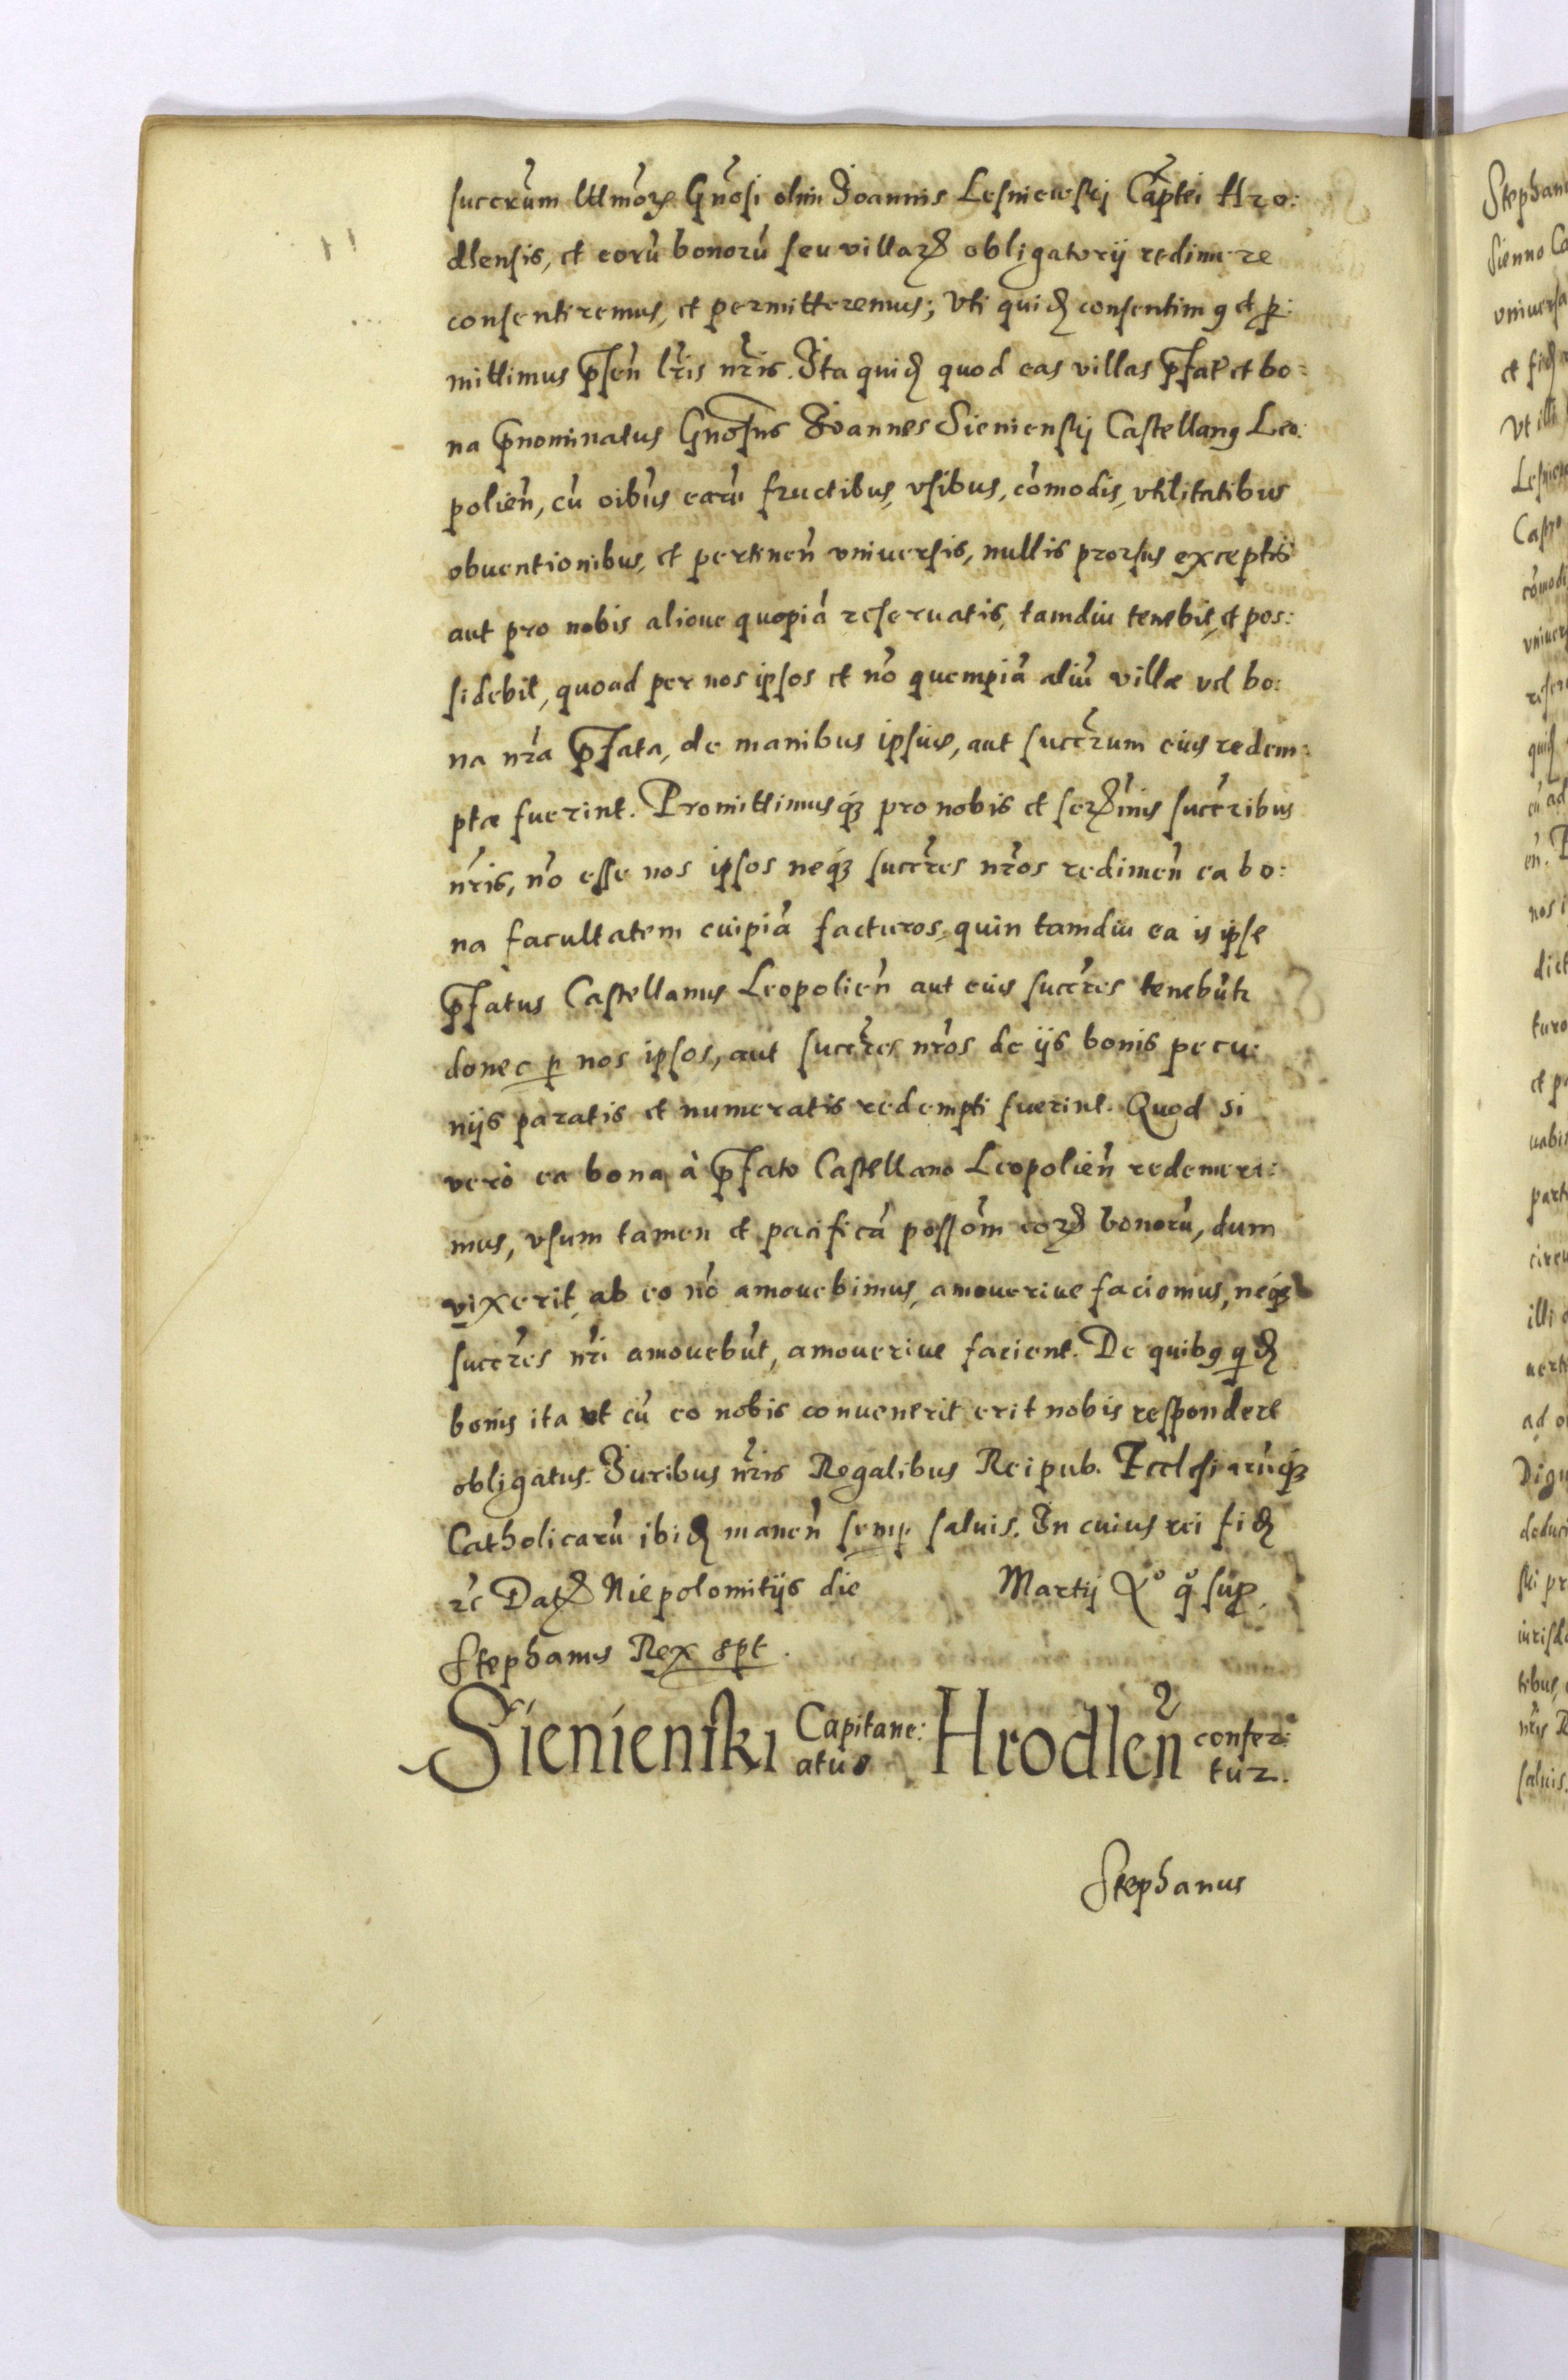 succrum Ultimorꝝ Gnosi olim Joannis Lesniewskij Captei Hro:
dlensis, et eorū bonorū seu villarꝝ obligatorij redimere
consentiremus, et permitteremus; Vti quidē consentimꝰ et ꝑ:
mittimus pn̄sen̄ lr̄is nr̄is. Ita quidē quod eas villas p̄fat et bo:
na p̄nominatus Gnosus Joannes Sieniensky Castellanꝰ Leo:
polien̄, cū oībus earū fructibus, vsibus, cōmodis, vtilitatibus
obuentionibus, et pertinen̄ vniuersis, nullis prorsus exceptis
aut pro nobis alioue quopiā reseruatis, tamdiu tenebit, et pos:
sidebit, quoad per nos ipsos et nō quempiā aliū villæ vel bo:
na nr̄a p̄fata, de manibus ipsius, aut succr̄um eius redem:
ptæ fuerint. Promittimusqꝫ pro nobis et serꝝmis succribus
nr̄is, nō esse nos ipsos neqꝫ succr̄es nr̄os redimen̄ ea bo:
na facultatem cuipiā facturos, quin tamdiu ea is ipse
p̄fatus Castellanus Leopolien̄ aut eius succr̄es tenebūt
donec ꝑ nos ipsos, aut succr̄es nr̄os de ijs bonis pecu:
nijs paratis et numeratis redempti fuerint. Quod si
verò ea bona à p̄fato Castellano Leopolien̄ redemeri:
mus, vsum tamen et pacificā possōm eorꝝ bonorū, dum
vixerit, ab eo nō amouebimus, amouerive faciemus, neqꝫ
succr̄es nr̄i amouebūt, amouerive facient. De quibꝰ qdē
bonis ita vt cū eo nobis convenerit erit nobis respondere
obligatus. Juribus nr̄is Regalibus Reipub. Ecclesiarūqꝫ
Catholicarū ibidē manen̄ semꝑ saluis. In cuius rei fidē
rc̄ Datꝝ Niepolomitijs die Martij Aº qº sup̄.
Stephanus Rex sp̄t.
Sienienski Capitane: atus Hrodlen̄ confer: tur.
Stephanus